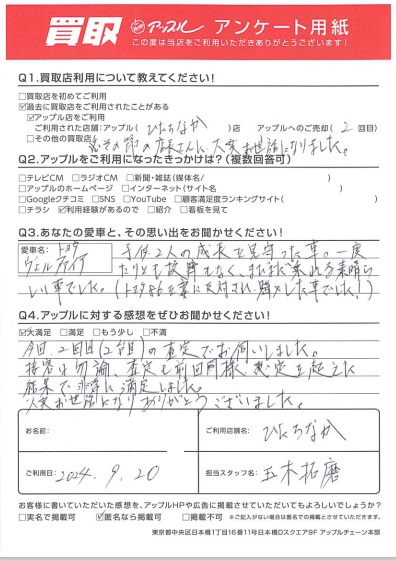 買取 アップル アンケート用紙
この度は当店をご利用いただきありがとうございます!
Q1.買取店利用について教えてください!
□買取店を初めてご利用
☑過去に買取店をご利用されたことがある
☑アップル店をご利用
ご利用された店舗:アップル( ひたちなか )店 アップルへのご売却( 2 回目)
□その他の買取店
店長さんに、大変お世話になりました。
Q2.アップルをご利用になったきっかけは?(複数回答可)
□テレビCM □ラジオCM □新聞・雑誌(媒体名/ )
□アップルのホームページ □インターネット(サイト名 )
□Googleクチコミ □SNS □YouTube □顧客満足度ランキングサイト( )
□チラシ ☑利用経験があるので □紹介 □看板を見て
Q3.あなたの愛車と、その思い出をお聞かせください!
愛車名:トヨタ ヴェルファイア
子供2人の成長を見守った車。一度
たりとも故障もなく、まだまだ乗れる素晴ら
しい車でした。(トヨタ86を妻に反対され、購入した車でした!)
Q4.アップルに対する感想をぜひお聞かせください!
☑大満足 □満足 □もう少し □不満
今回、2回目(2台目)の査定でお伺いしました。
接客は勿論、査定も前回同様、想定を超えた
結果で非常に満足しました。
大変お世話になりありがとうございました。
お名前:
ご利用店舗名: ひたちなか
ご利用日: 2024.9.20
担当スタッフ名: 五木拓磨
お客様に書いていただいた感想を、アップルHPや広告に掲載させていただいてもよろしいでしょうか?
□実名で掲載可 ☑匿名なら掲載可 □掲載不可 ※ご記入がない場合は匿名での掲載とさせていただきます。
東京都中央区日本橋1丁目16番11号日本橋Dスクエア9F アップルチェーン本部